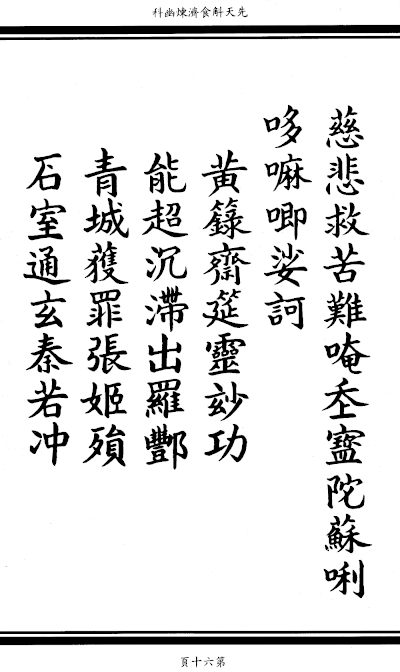 先天斛食濟煉幽科
慈悲救苦難唵陀蘇唎
哆嘛唧娑訶
黃籙齋筵靈玅功
能超沉滯出羅酆
青城獲罪張姬殞
石室通玄秦若冲
第六十頁